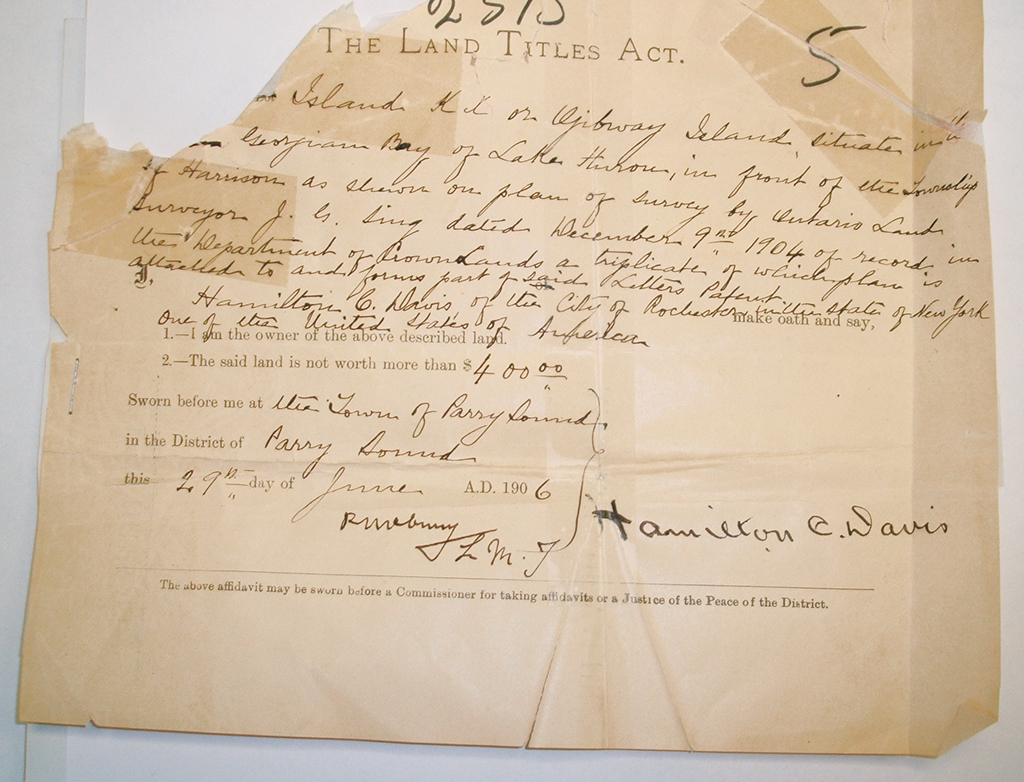 5
THE LAND TITLES ACT.
Island K K or Ojibway Island, situate in the
Georgian Bay of Lake Huron, in front of the Township
of Harrison as shewn on plan of survey by Ontario Land
Surveyor J. G. Sing dated December 9th 1904 of record in
the Department of Crown Lands a triplicate of which plan is
attached to and forms part of said Letters Patent.
I, Hamilton C. Davis of the City of Rochester in the State of New York
one of the United States of America make oath and say,
1.—I am the owner of the above described land.
2.—The said land is not worth more than $400 00
Sworn before me at the Town of Parry Sound
in the District of Parry Sound
this 29th day of June A.D. 1906
Hamilton C. Davis
The above affidavit may be sworn before a Commissioner for taking affidavits or a Justice of the Peace of the District.